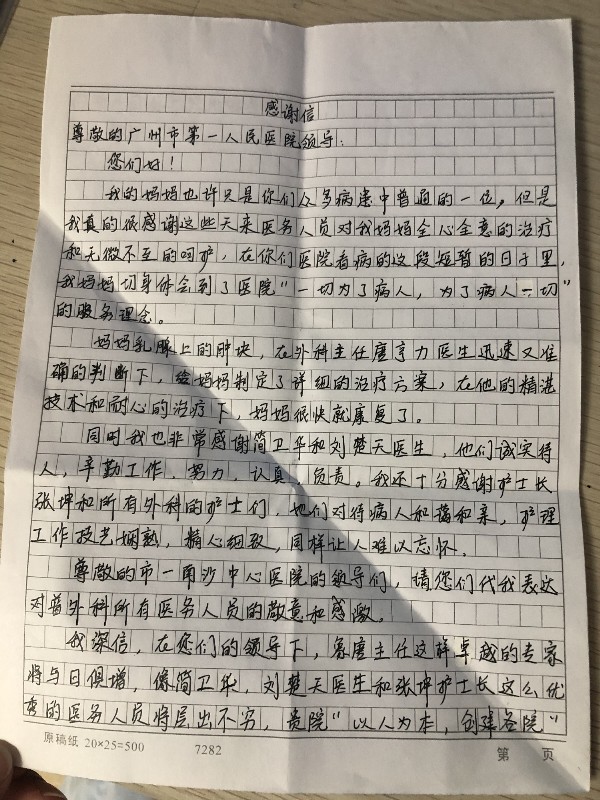 感谢信
尊敬的广州市第一人民医院领导:
您们好!
我的妈妈也许只是你们众多病患中普通的一位。但是
我真的很感谢这些天来医务人员对我妈妈全心全意的治疗
和无微不至的呵护,在你们医院看病的这段短暂的日子里,
我妈妈切身体会到了医院"一切为了病人,为了病人一切"
的服务理念。
妈妈乳腺上的肿块,在外科主任唐亨力医生迅速又准
确的判断下,给妈妈制定了详细的治疗方案,在他的精湛
技术和耐心的治疗下,妈妈很快就康复了。
同时我也非常感谢简卫华和刘楚天医生,他们诚实待
人,辛勤工作,努力,认真,负责。我还十分感谢护士长
张坤和所有外科的护士们,她们对待病人和蔼和亲,护理
工作技艺娴熟,精心细致,同样让人难以忘怀。
尊敬的市一南沙中心医院的领导们,请您们代我表达
对普外科所有医务人员的敬意和感激。
我深信,在您们的领导下,象唐主任这样卓越的专家
将与日俱增,像简卫华,刘楚天医生和张坤护士长这么优
秀的医务人员将层出不穷,贵院"以人为本,创建名院"
原稿纸 20×25=500 7282 第 页